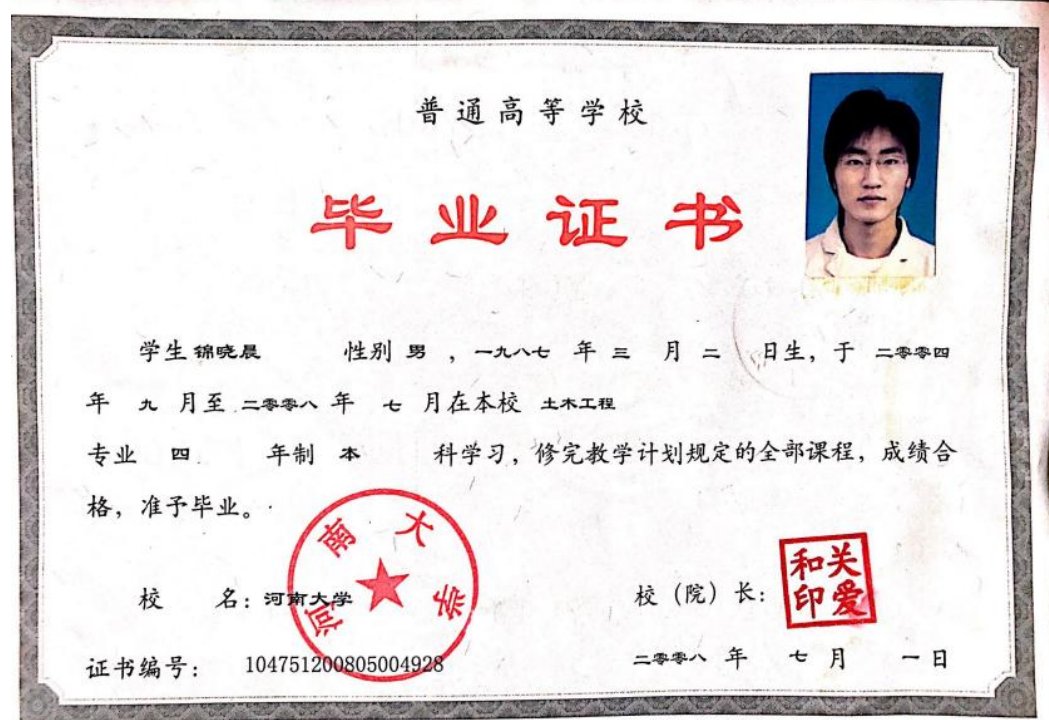 普通高等学校
毕业证书
学生 锦晓晨 性别 男 ，一九八七 年 三 月 二 日生，于 二零零四
年 九 月至 二零零八 年 七 月在本校 土木工程
专业 四 年制 本 科学习，修完教学计划规定的全部课程，成绩合
格，准予毕业。
河南大学
校 名：河南大学
校（院）长：
关爱和印
证书编号： 104751200805004928
二零零八 年 七 月 一 日